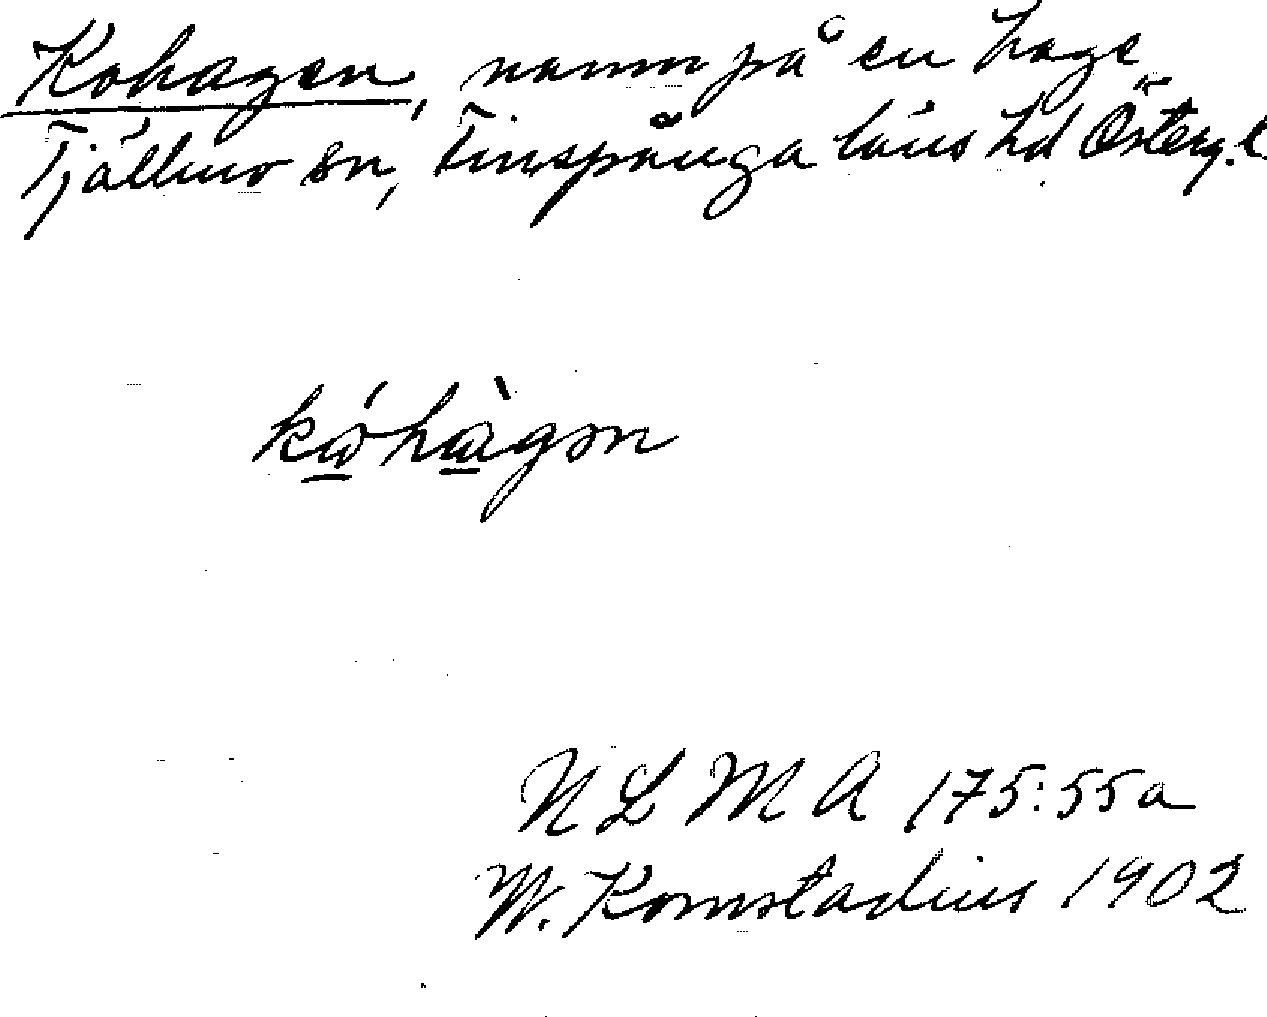 Kohagen, namn på en hage
Tjällmo sn, Finspånga läns hd Österg. l
kɷ́hàgən
N L M A 175:55a
W. Komstadius 1902